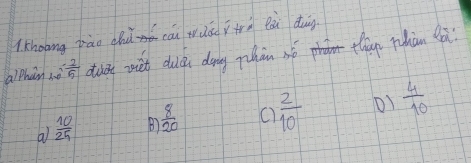 1. Khoang vào chữ cái trước ý trả lời đúng.
a) Phân số 2/5 được viết dưới dạng phân số thập phân là:
a) 10/25 B) 8/20 C) 2/10 D) 4/10